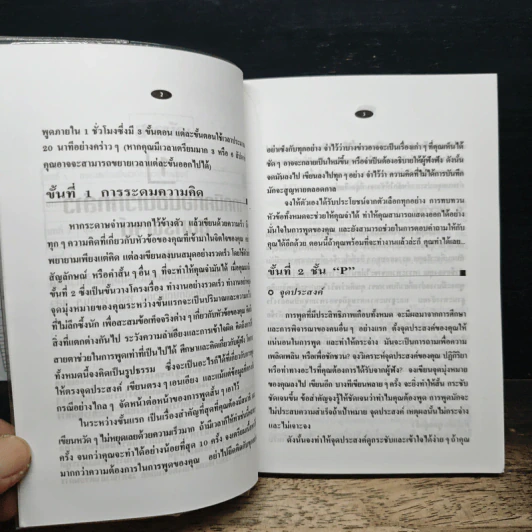 2
พูดภายใน 1 ชั่วโมงซึ่งมี 3 ขั้นตอน แต่ละขั้นตอนใช้เวลาประมาณ
20 นาทีอย่างคร่าว ๆ (หากคุณมีเวลาเตรียมมาก 3 หรือ 6
คุณอาจจะสามารถขยายเวลาแต่ละขั้นออกไปได้)
ขั้นที่ 1 การระดมความคิด
หากระดาษจำนวนมากไว้ข้างตัว แล้วเขียนด้วยความเร็ว
ทุก ๆ ความคิดที่เกี่ยวกับหัวข้อของคุณที่เข้ามาในจิตใจของคุณ
พยายามเพียงแต่คิด แต่ลงเขียนลงบนสมุดอย่างรวดเร็ว โดยใช้
สัญลักษณ์ หรือคำสั้น ๆ อื่น ๆ ที่จะทำให้คุณจำมันได้ เมื่อคุณ
ขั้นที่ 2 ซึ่งเป็นขั้นวางโครงเรื่อง ทำงานอย่างรวดเร็ว
จุดมุ่งหมายของคุณระหว่างขั้นแรกจะเป็นปริมาณและความ
ที่ไม่ลึกซึ้งนัก เพื่อสะสมข้อเท็จจริงต่าง ๆ เกี่ยวกับหัวข้อพูดของคุณ
สิ่งที่แตกต่างกันไป ระวังความลำเอียงและการเข้าใจผิด
สายตาช่วยในการพูดเท่าที่เป็นไปได้ ศึกษาและคิดเกี่ยวกับผู้ฟัง
ทั้งหมดนี้จงคิดเป็นรูปธรรม ซึ่งจะเป็นอะไรก็ได้ที่เกี่ยวกับ
ให้ตรงจุดประสงค์ เขียนตรง ๆ เอนเอียง และแม้แต่ข้อมูล
กรณีอย่างไกล ๆ จัดหน้าต่อหน้าของการพูดสั้น ๆ เอาไว้
ในระหว่างขั้นแรก เป็นเรื่องสำคัญที่สุดที่คุณต้อง
เขียนหวัด ๆ ไม่หยุดเลยด้วยความเร็วมาก ถ้ามีเวลาก็ให้ทำ
ครั้ง จนกว่าคุณจะทำได้อย่างน้อยที่สุด 10 ครั้ง จงเตรียม
มากกว่าความต้องการในการพูดของคุณ อย่าไปยึดติดกับ
3
อย่าเซ็งกับทุกอย่าง จำไว้ว่าบางข่าวอาจจะเป็นเรื่องเก่า ๆ ที่คุณคันได้
ชัด ๆ อาจจะกลายเป็นใหม่ขึ้น หรือจำเป็นต้องอธิบายให้ผู้ฟังฟัง ดังนั้น
จดมันลงไป เขียนลงไปทุก ๆ อย่าง จำไว้ว่า ความคิดที่ไม่ได้การบันทึก
มักจะสูญหายตลอดกาล
จงให้ตัวเองได้รับประโยชน์จากตัวเลือกทุกอย่าง การทบทวน
หัวข้อทั้งหมดจะช่วยให้คุณจำได้ ทำให้คุณสามารถแสดงออกได้อย่าง
มั่นใจในการพูดของคุณ และยังสามารถช่วยในการตอบคำถามให้กับ
คุณได้อีกด้วย ตอนนี้ถ้าคุณพร้อมที่จะทำงานแล้วล่ะก็ คุณทำได้เลย...
ขั้นที่ 2 ชั้น “P”
จุดประสงค์
การพูดที่มีประสิทธิภาพเกือบทั้งหมด จะมีผลมาจากการศึกษา
และการพิจารณาของคนอื่น ๆ อย่างแรก ตั้งจุดประสงค์ของคุณให้
แน่นอนในการพูด และทำให้กระจ่าง มันจะเป็นการถามเพื่อความ
เพลิดเพลิน หรือเพื่อชักชวน? จงวิเคราะห์จุดประสงค์ของคุณ ปฏิกิริยา
หรือท่าทางอะไรที่คุณต้องการได้รับจากผู้ฟัง? จงเขียนจุดมุ่งหมาย
ของคุณลงไป เขียนอีก บางทีเขียนหลาย ๆ ครั้ง จะยิ่งทำให้สั้น กระชับ
ชัดเจนขึ้น ข้อสำคัญจงรู้ให้ชัดเจนว่าทำไมคุณต้องพูด การพูดมักจะ
ไม่ประสบความสำเร็จถ้าเป้าหมาย จุดประสงค์ เหตุผลนั้นไม่กระจ่าง
และไม่เจาะจง
ดังนั้นจงทำให้จุดประสงค์ดูกระชับและเข้าใจได้ง่าย ๆ ถ้าคุณ